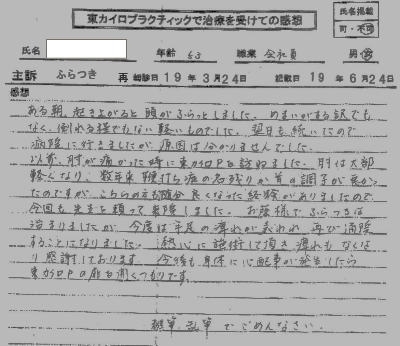 東カイロプラクティックで治療を受けての感想
氏名掲載
可・不可
氏名 年齢 53 職業 会社員 男・女
主訴 ふらつき 再 初診日 19年 3月24日 記載日 19年 6月24日
感想
ある朝、起き上がると頭がふらっとしました。めまいがする訳でも
なく、倒れる程でもない軽いものでした。翌日も続いたので
病院に行きましたが原因は分かりませんでした。
以前、肘が痛かった時に東カイロPを訪ねました。肘は大部
軽くなり、数年来鞭打ち症の名残りか首の調子が悪かっ
たのですが、こちらの方も随分良くなった経験がありましたので
今回も先生を頼って来院しました。お陰様でふらつきは
治まりましたが、今度は手足の痺れが表われ、再び通院
することになりました。熱心に施術して頂き痺れもなくな
り感謝しております。今後も身体に心配事が発生したら
東カイロPの扉を開くつもりです。
乱筆でごめんなさい。